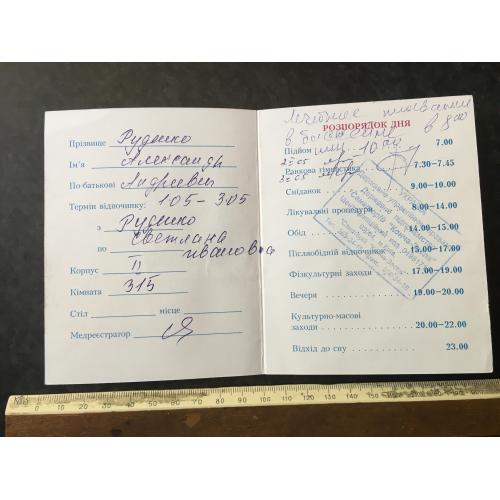 Прізвище Руденко
Ім'я Александр
По-батькові Андреевич
Термін відпочинку: 1 05 - 3.05
з Руденко
по Светлана
Ивановна
Корпус II
Кімната 315
Стіл місце
Медреєстратор
Лечебное плавание
в бассейне в 8 00
РОЗПОРЯДОК ДНЯ
Підйом 7.00
Ранкова гімнастика 7.30-7.45
Сніданок 9.00-10.00
Лікувальні процедури 8.00-14.00
Обід 14.00-15.00
Післяобідній відпочинок 15.00-17.00
Фізкультурні заходи 17.00-19.00
Вечеря 19.00-20.00
Культурно-масові
заходи 20.00-22.00
Відхід до сну 23.00
0 10 20 30 40 50 60 70 80 90 100 110 120 130 140 150 160 170 180 190 200 210 220